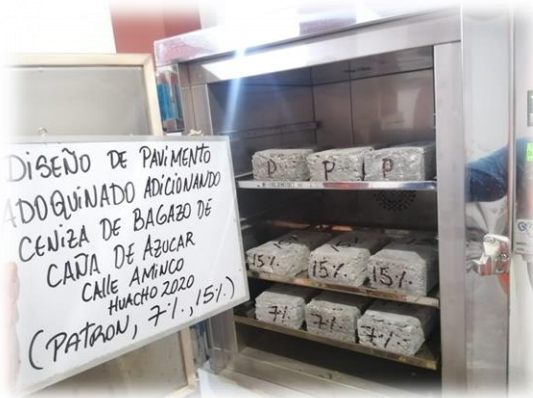 DISEÑO DE PAVIMENTO
ADOQUINADO ADICIONANDO
CENIZA DE BAGAZO DE
CAÑA DE AZUCAR
CALLE AMINCO
HUACHO 2020
(PATRON, 7%, 15%)
P P P
15% 15% 15%
7% 7% 7%